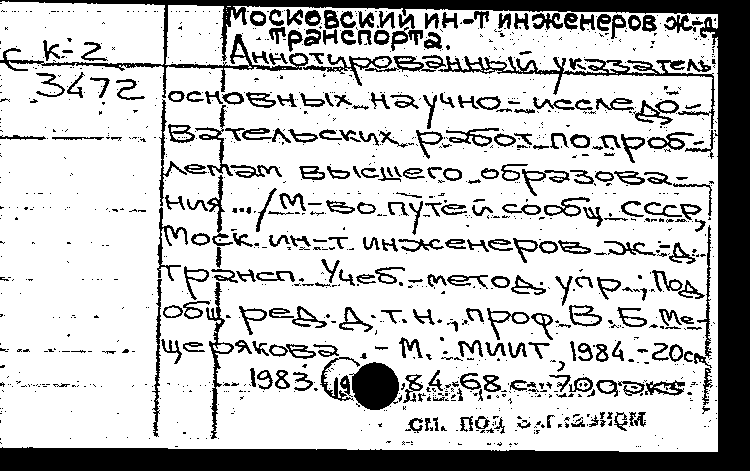 Московский ин-т инженеров ж-д
транспорта.
С К-2
3472
Аннотированный указатель
основных научно-исследо-
вательских работ по проб-
лемам высшего образова-
ния .../ М-во путей сообщ. СССР,
Моск. ин-т инженеров ж.-д.
трансп. Учеб.-метод. упр.; Под
общ. ред. д.т.н., проф. В.Б. Ме-
щерякова. - М.: МИИТ, 1984. - 20см
1983. 84. 68 с. 700 экз.
см. под